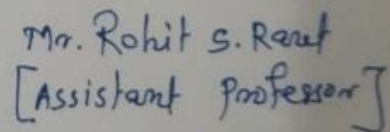 Mr. Rohit S. Raut
[Assistant Professor]